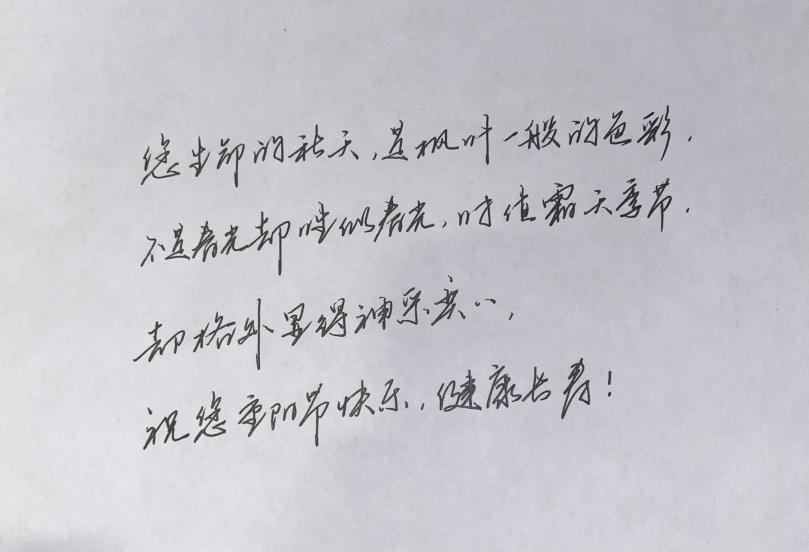 您生命的秋天,是枫叶一般的色彩,
不是春光却胜似春光,时值霜天季节,
却格外显得神采奕奕,
祝您重阳节快乐,健康长寿!